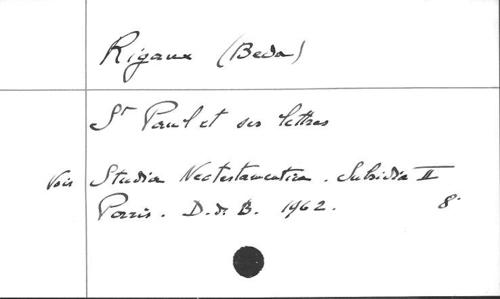 Rigaux (Beda)
St Paul et ses lettres
Voir Studia Neotestamentica. Subsidia II
Paris. D.d.B. 1962. 8.